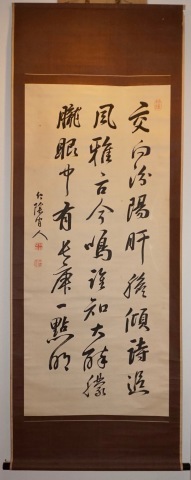 交向汾陽肝膽傾詩追
風雅古今鳴誰知大醉朦
朧眼中有長庚一點明